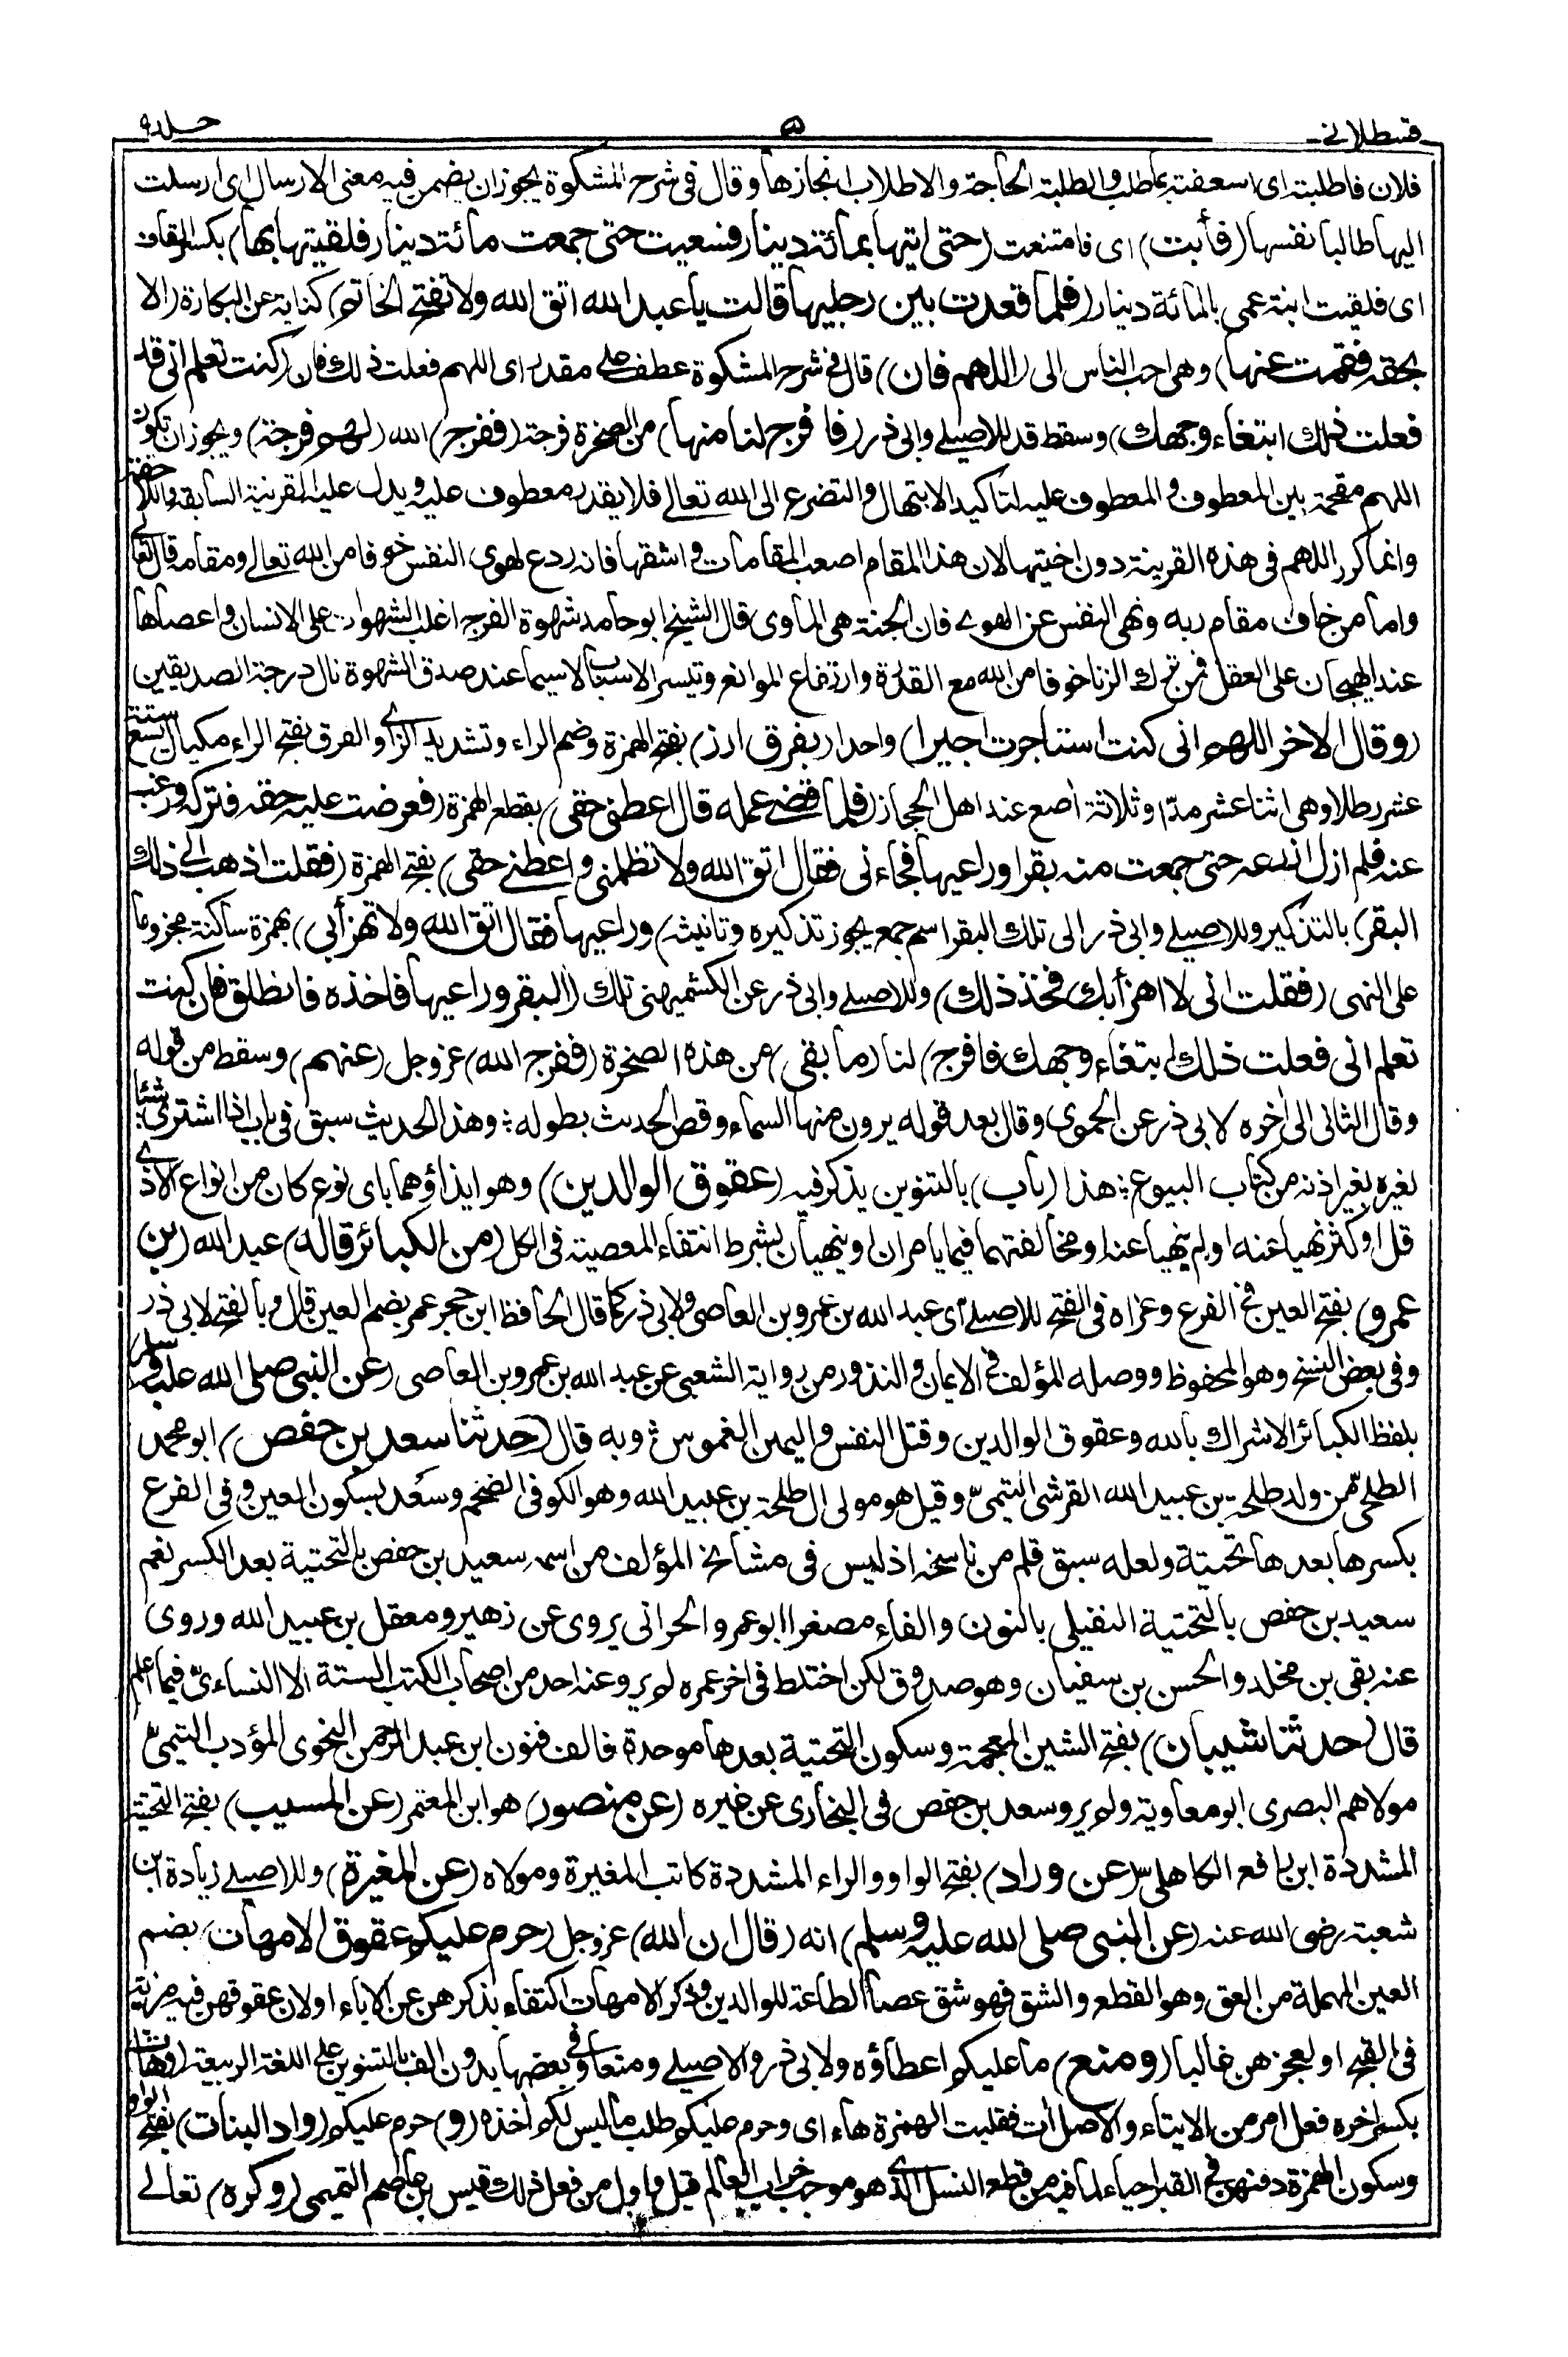 قسطلاني ٥ جلد ٩
فلان فاطلبته اى اسعفته بما طلب والطلبة الحاجة والاطلاب انجازها وقال فى شرح المشكوة يجوز ان يضمن فيه معنى الارسال اى ارسلت
اليها طالبا نفسها (فأبت) اى فامتنعت (حتى اتيتها بمائة دينار فسعيت حتى جمعت مائة دينار فلقيتها بها) بكسر القاف
اى فلقيت ابنة عمى بالمائة دينار (فلما قعدت بين رجليها قالت يا عبد الله اتق الله ولا تفتح الخاتم) كناية عن البكارة (الا
بحقه فقمت عنها) وهى احب الناس الى (اللهم فان) قال فى شرح المشكوة عطف على مقدر اى اللهم فعلت ذلك فان (كنت تعلم انى قد
فعلت ذلك ابتغاء وجهك) وسقط قد للاصيلى وابى ذر (فافرج لنا منها) من الصخرة فرجة (ففرج) الله (لهم فرجة) ويجوز ان تكون
اللهم مقحمة بين المعطوف والمعطوف عليه لتاكيد الابتهال والتضرع الى الله تعالى فلا يقدر معطوف عليه ويدل عليه القرينة السابقة واللاحقة
وانما كرر اللهم فى هذه القرينة دون اختيها لان هذا المقام اصعب المقامات واشقها فانه ردع لهوى النفس خوفا من الله تعالى ومقامه قال تعالى
واما من خاف مقام ربه ونهى النفس عن الهوى فان الجنة هى الماوى قال الشيخ ابو حامد شهوة الفرج اغلب الشهوات على الانسان واعصاها
عند الهيجان على العقل فمن ترك الزنا خوفا من الله مع القدرة وارتفاع الموانع وتيسر الاسباب لاسيما عند صدق الشهوة نال درجة الصديقين
(وقال الاخر اللهم انى كنت استاجرت اجيرا) واحدا (بفرق ارز) بفتح الهمزة وضم الراء وتشديد الزاى والفرق بفتح الراء مكيال يسع ستة
عشر رطلا وهى اثنا عشر مدّا وثلاثة أصع عند اهل الحجاز (فلما قضى عمله قال اعطنى حقى) بقطع الهمزة (فعرضت عليه حقه فتركه ورغب
عنه فلم ازل ازرعه حتى جمعت منه بقرا وراعيها فجاءنى فقال اتق الله ولا تظلمنى واعطنى حقى) بفتح الهمزة (فقلت اذهب الى ذلك
البقر) بالتذكير وللاصيلى وابى ذر الى تلك البقر اسم جمع يجوز تذكيره وتانيثه (وراعيها فقال اتق الله ولا تهزأ بى) بهمزة ساكنة مجزوما
على النهى (فقلت انى لا اهزأ بك فخذ ذلك) وللاصيلى وابى ذر عن الكشميهنى تلك (البقر وراعيها فاخذه فانطلق فان كنت
تعلم انى فعلت ذلك ابتغاء وجهك فافرج) لنا (ما بقى) من هذه الصخرة (ففرج الله) عزوجل (عنهم) وسقط من قوله
وقال الثانى الى أخره لابى ذر عن الحموى وقال بعد قوله يرون منها السماء وقص الحديث بطوله : وهذا الحديث سبق فى باب اذا اشترى شيئا
لغيره بغير اذنه من كتاب البيوع : هذا (باب) بالتنوين يذكر فيه (عقوق الوالدين) وهو ايذاؤهما باى نوع كان من انواع الاذى
قل او كثر نهيا عنه او لم ينهيا عنه او مخالفتهما فيما يامران او ينهيان بشرط انتفاء المعصية فى الكل (من الكبائر قاله) عبد الله (بن
عمرو) بفتح العين فى الفرع وعزاه فى الفتح للاصيلى اى عبد الله بن عمرو بن العاصى ولابى ذر كما قال الحافظ ابن حجر عمر بضم العين قال وبالفتح لابى ذر
وفى بعض النسخ وهو المحفوظ ووصله المؤلف فى الايمان والنذور من رواية الشعبى عن عبد الله بن عمرو بن العاصى (عن النبى صلى الله عليه وسلم)
بلفظ الكبائر الاشراك بالله وعقوق الوالدين وقتل النفس واليمين الغموس : وبه قال (حدثنا سعد بن حفص) ابو محمد
الطلحى من ولد طلحة بن عبيد الله القرشى التيمى وقيل هو مولى ال طلحة بن عبيد الله وهو الكوفى الضخم وسعد بسكون العين وفى الفرع
بكسرها بعدها تحتية ولعله سبق قلم من ناسخه اذ ليس فى مشائخ المؤلف من اسمه سعيد بن حفص بالتحتية بعد الكسر نعم
سعيد بن حفص بالتحتية النفيلى بالنون والفاء مصغرا ابو عمرو الحرانى يروى عن زهير ومعقل بن عبيد الله وروى
عنه بقى بن مخلد والحسن بن سفيان وهو صدوق لكن اختلط فى اخر عمره لم يرو عنه احد من اصحاب الكتب الستة الا النساءىّ فيما اعلم
قال (حدثنا شيبان) بفتح الشين المعجمة وسكون التحتية بعدها موحدة فالف فنون ابن عبد الرحمن النحوى المؤدب التيمى
مولاهم البصرى ابو معاوية ولم يرو سعد بن حفص فى البخارى عن غيره (عن منصور) هو ابن المعتمر (عن المسيب) بفتح التحتية
المشددة ابن رافع الكاهلى (عن وراد) بفتح الواو والراء المشددة كاتب المغيرة ومولاه (عن المغيرة) وللاصيلى زيادة ابن
شعبة رضى الله عنه (عن النبى صلى الله عليه وسلم) انه (قال ان الله) عزوجل (حرم عليكم عقوق الامهات) بضم
العين المهملة من العق وهو القطع والشق فهو شق عصا الطاعة للوالدين وذكر الامهات اكتفاء بذكرهن عن الاباء او لان عقوقهن فيه مزية
فى القبح او لعجزهن غالبا (ومنع) ما عليكم اعطاؤه ولابى ذر والاصيلى ومنعا وفى بعضها بدون الف بالتنوين على اللغة الربيعة (وهات)
بكسر اخره فعل امر من الايتاء والاصل أت فقلبت الهمزة هاء اى وحرم عليكم طلب ما ليس لكم أخذه (و) حرم عليكم (واد البنات) بفتح الواو
وسكون الهمزة دفنهن فى القبر احياء لما فيه من قطع النسل الذى هو موجب خراب العالم قيل واول من فعل ذلك قيس بن عاصم التميمى (وكره) تعالى